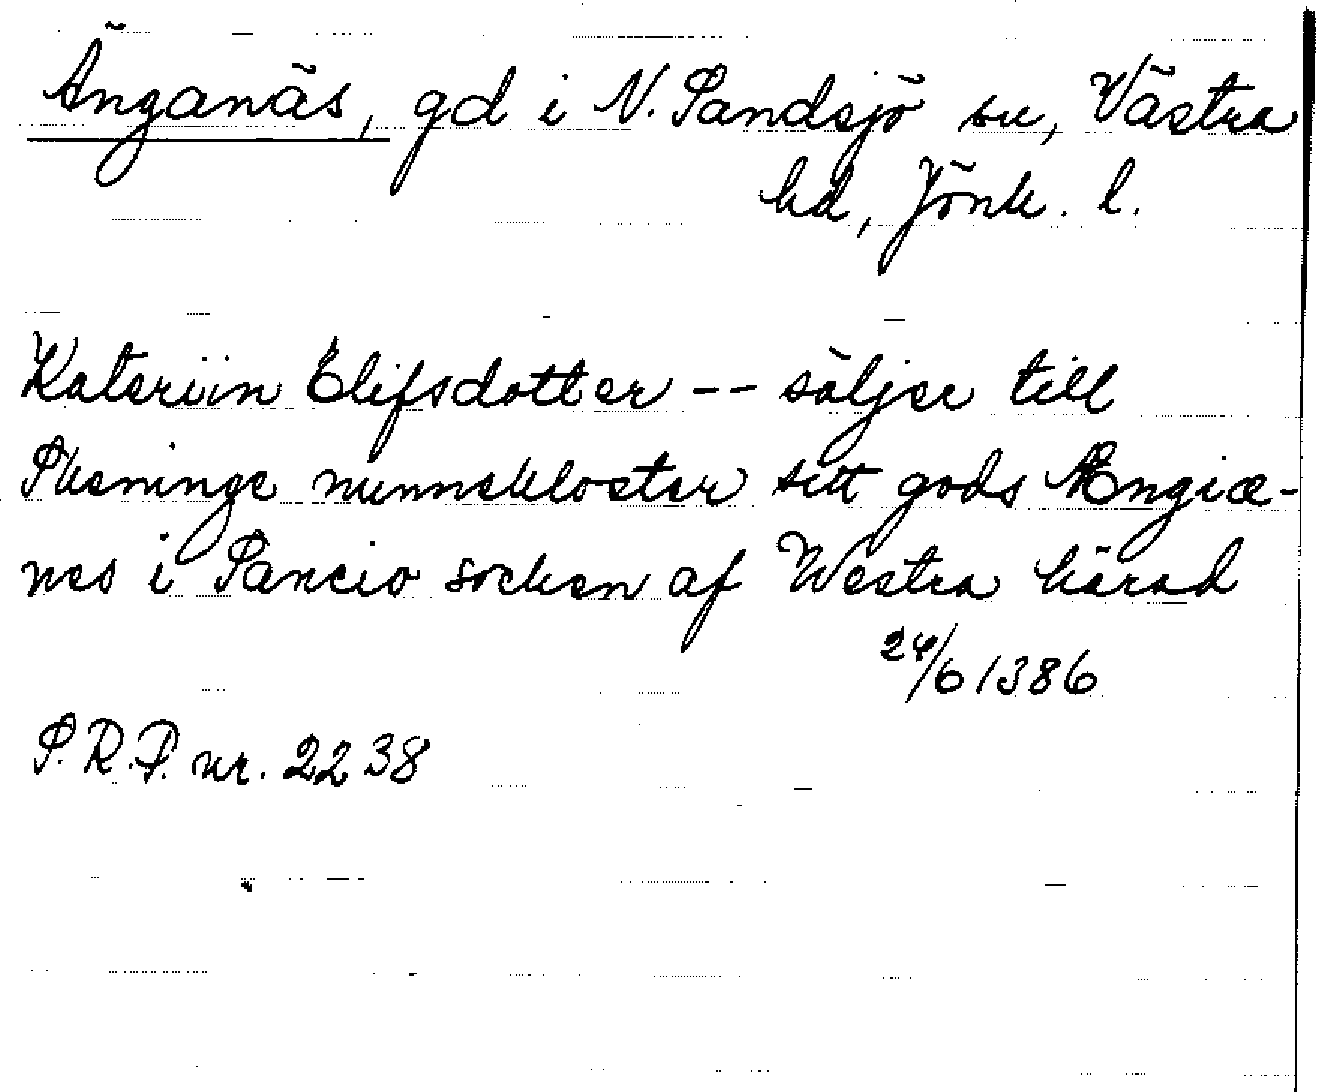 Änganäs, gd i N. Sandsjö sn, Västra
hd, Jönk. l.
Kateriin Elifsdotter -- säljer till
Skeninge nunnekloster sitt gods Ængiæ-
nes i Sancio socken af Westra härad
24/6 1386
S.R.P. nr. 2238